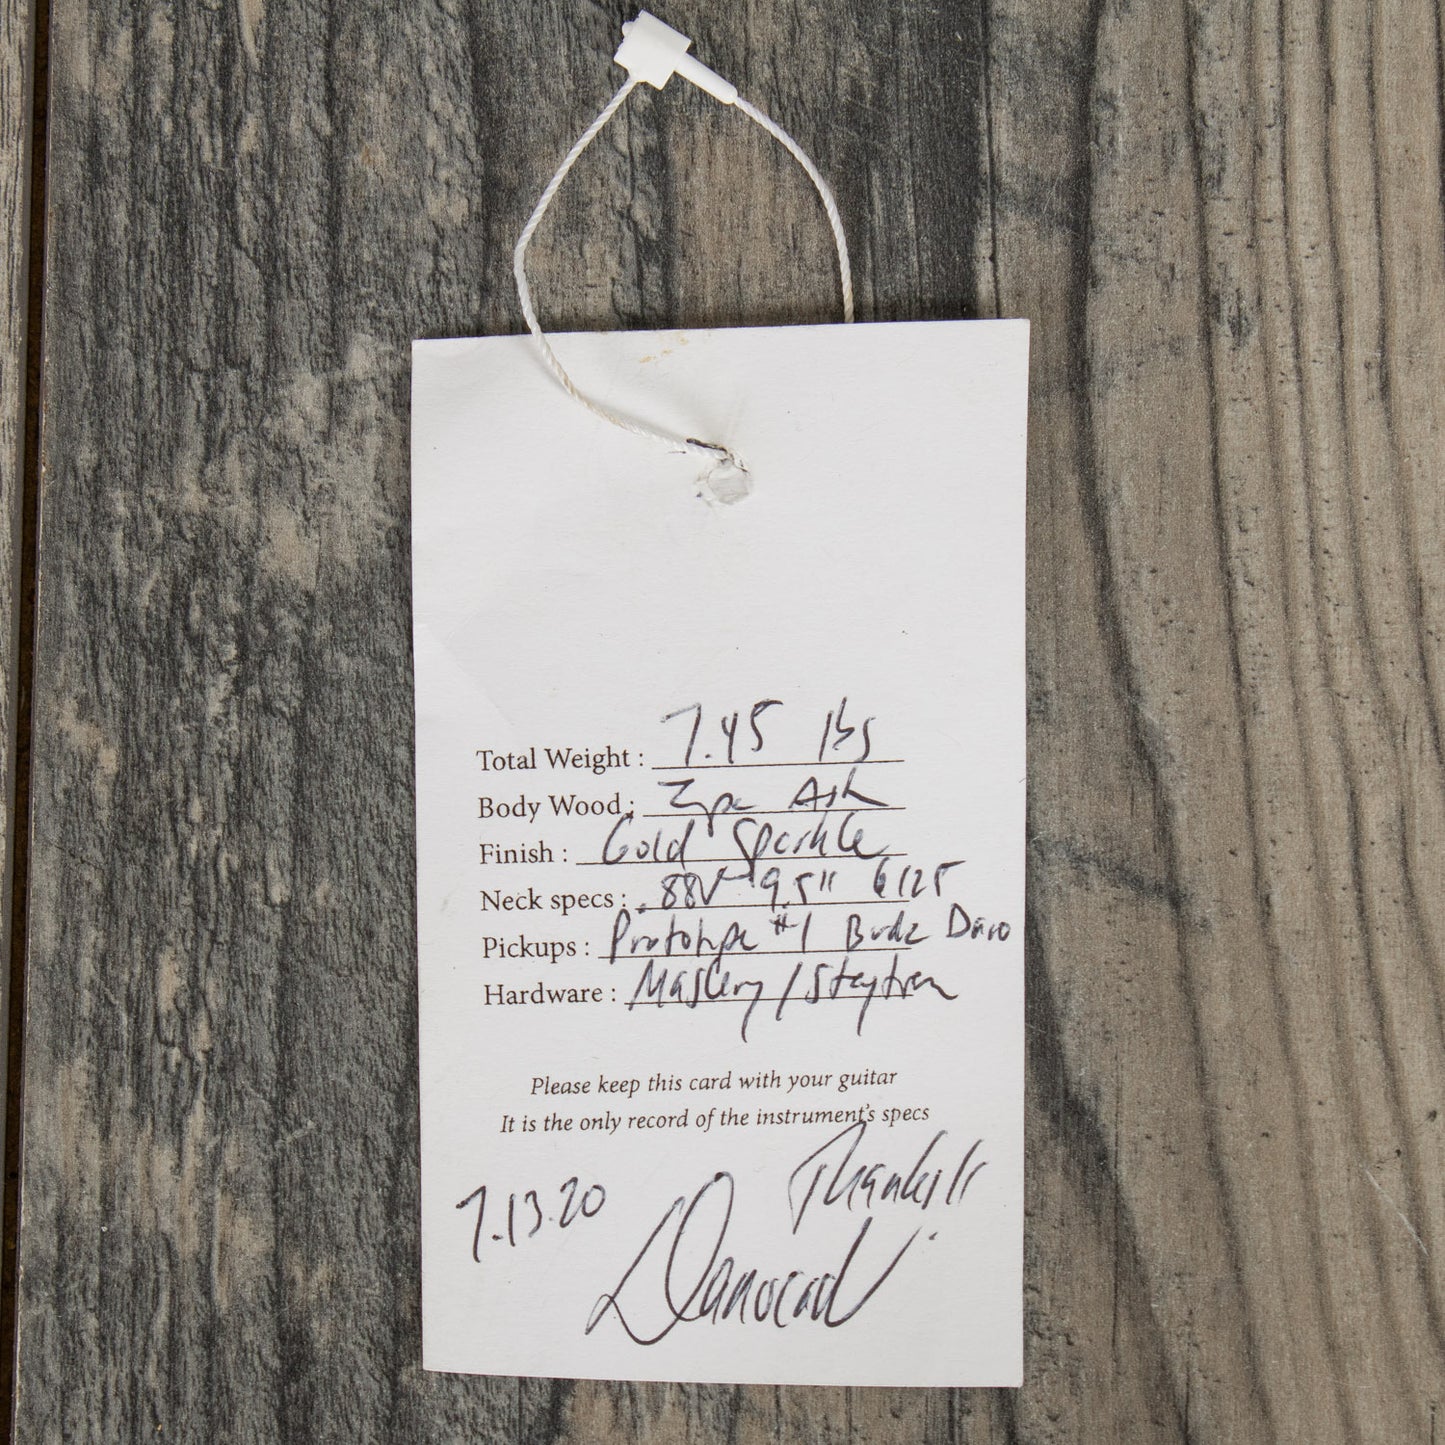 Total Weight : 7.45 lbs
Body Wood : 2pc Ash
Finish : Gold Sparkle
Neck specs : .88V 9.5" 6125
Pickups : Prototype #1 Duo
Hardware : Mastery / Staytrem
Please keep this card with your guitar
It is the only record of the instrument's specs
Thanks!!
7.13.20
Danocad